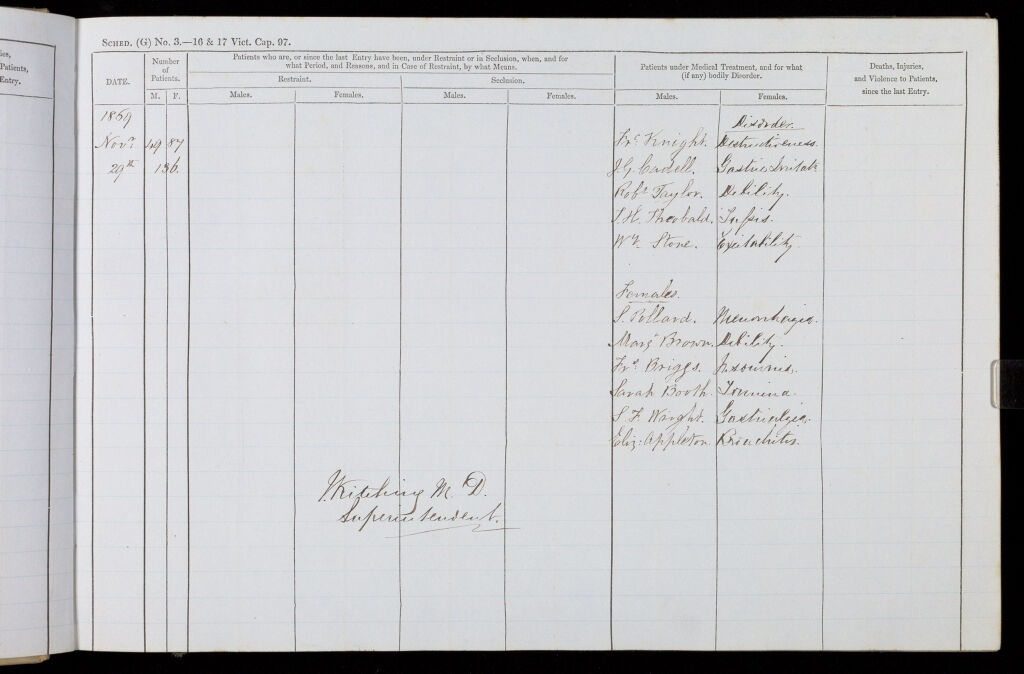 ies,
Patients,
Entry.
SCHED. (G) No. 3.—16 & 17 Vict. Cap. 97.
DATE.
Number of Patients.
M. F.
Patients who are, or since the last Entry have been, under Restraint or in Seclusion, when, and for
what Period, and Reasons, and in Case of Restraint, by what Means.
Restraint. Seclusion.
Males. Females. Males. Females.
Patients under Medical Treatment, and for what
(if any) bodily Disorder.
Males. Females.
Deaths, Injuries,
and Violence to Patients,
since the last Entry.
1869 Disorder.
Novr 49 87 Frs Knight. Destructiveness.
29th 136. J.G. Gastric Irritatn
Robt Taylor. Debility.
S.H. Theobald. Tussis.
Wm Stone. Excitability.
Females.
S. Pollard. Menorrhagia.
Margt Brown. Debility.
Frs Briggs. Insomnia.
Sarah Booth.
S. F. Wright. Gastralgia.
Eliz: Appleton. Bronchitis.
J. Kitching M.D.
Superintendent.